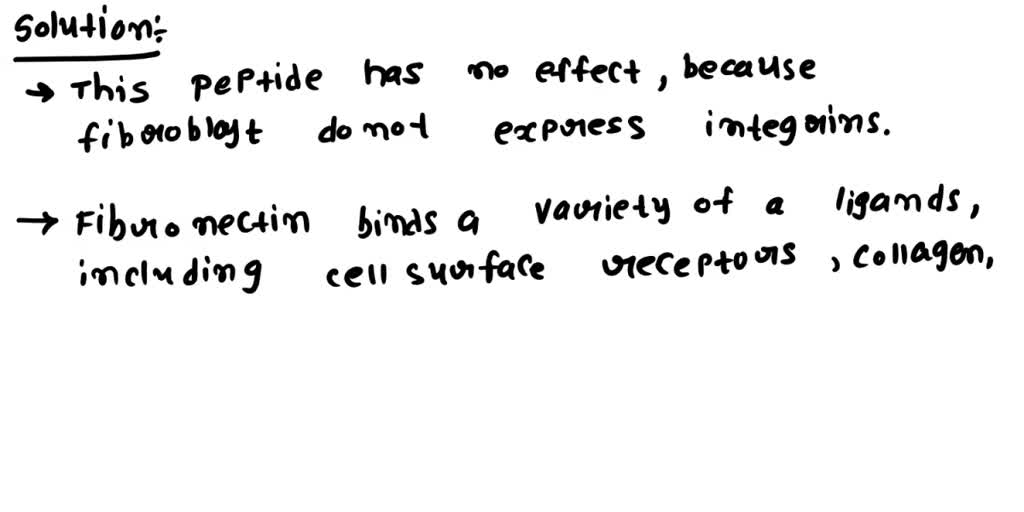 Solution:-
→ This peptide has no effect, because
fibroblast do not express integrins.
→ Fibronectin binds a variety of a ligands,
including cell surface receptors, collagen,